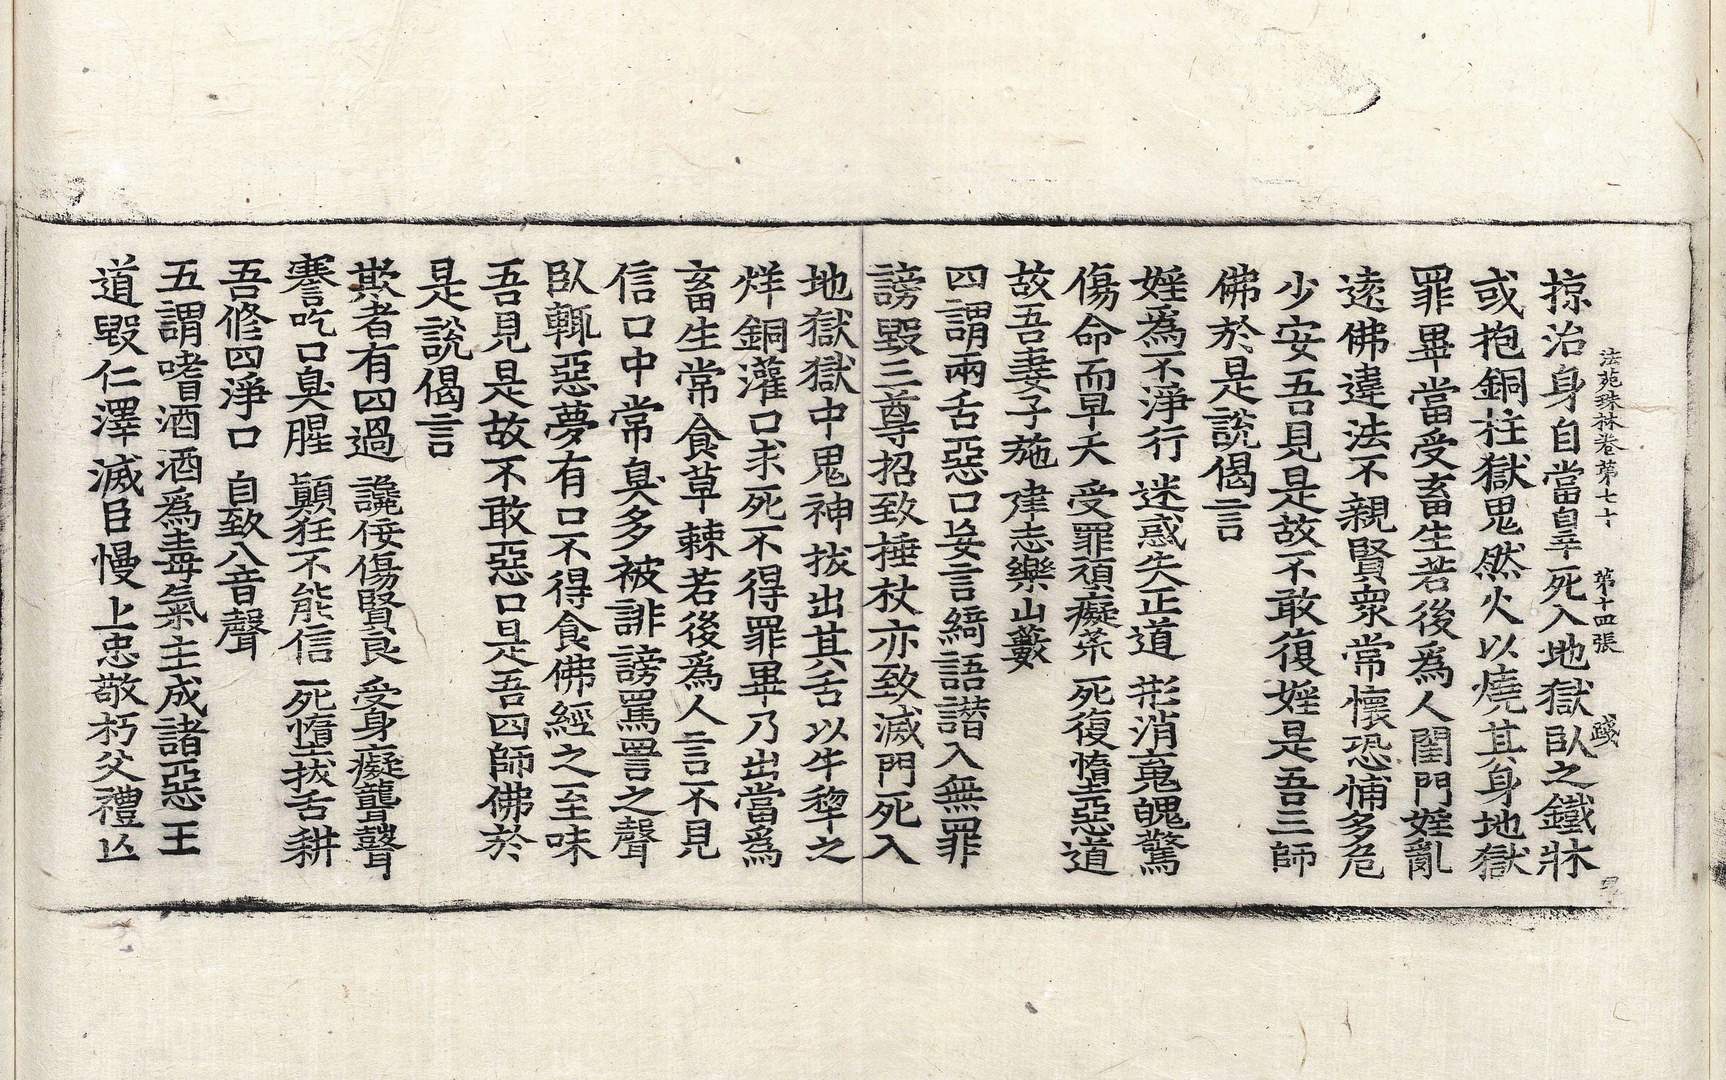 法苑珠林卷第七十 第十四張 踐
掠治身自當辜死入地獄臥之鐵牀
或抱銅柱獄鬼然火以燒其身地獄
罪畢當受畜生若後為人閨門婬亂
逺佛違法不親賢衆常懷恐怖多危
少安吾見是故不敢復婬是吾三師
佛於是說偈言
婬為不淨行 迷惑失正道 形消䰟魄驚
傷命而早夭 受罪頑癡荒 死復墮惡道
故吾妻子施 建志樂山藪
四謂兩舌惡口妄言綺語譖入無罪
謗毀三尊招致捶杖亦致滅門死入
地獄獄中鬼神拔出其舌以牛犂之
烊銅灌口求死不得罪畢乃出當為
畜生常食草棘若後為人言不見
信口中常臭多被誹謗罵詈之聲
臥輒惡夢有口不得食佛經之至味
吾見是故不敢惡口是吾四師佛於
是說偈言
欺者有四過 讒佞傷賢良 受身癡聾聲
謇吃口臭腥 顛狂不能信 死墮拔舌耕
吾修四淨口 自致八音聲
五謂嗜酒酒為毒氣主成諸惡王
道毀仁澤滅臣慢上忠敬朽父禮亾